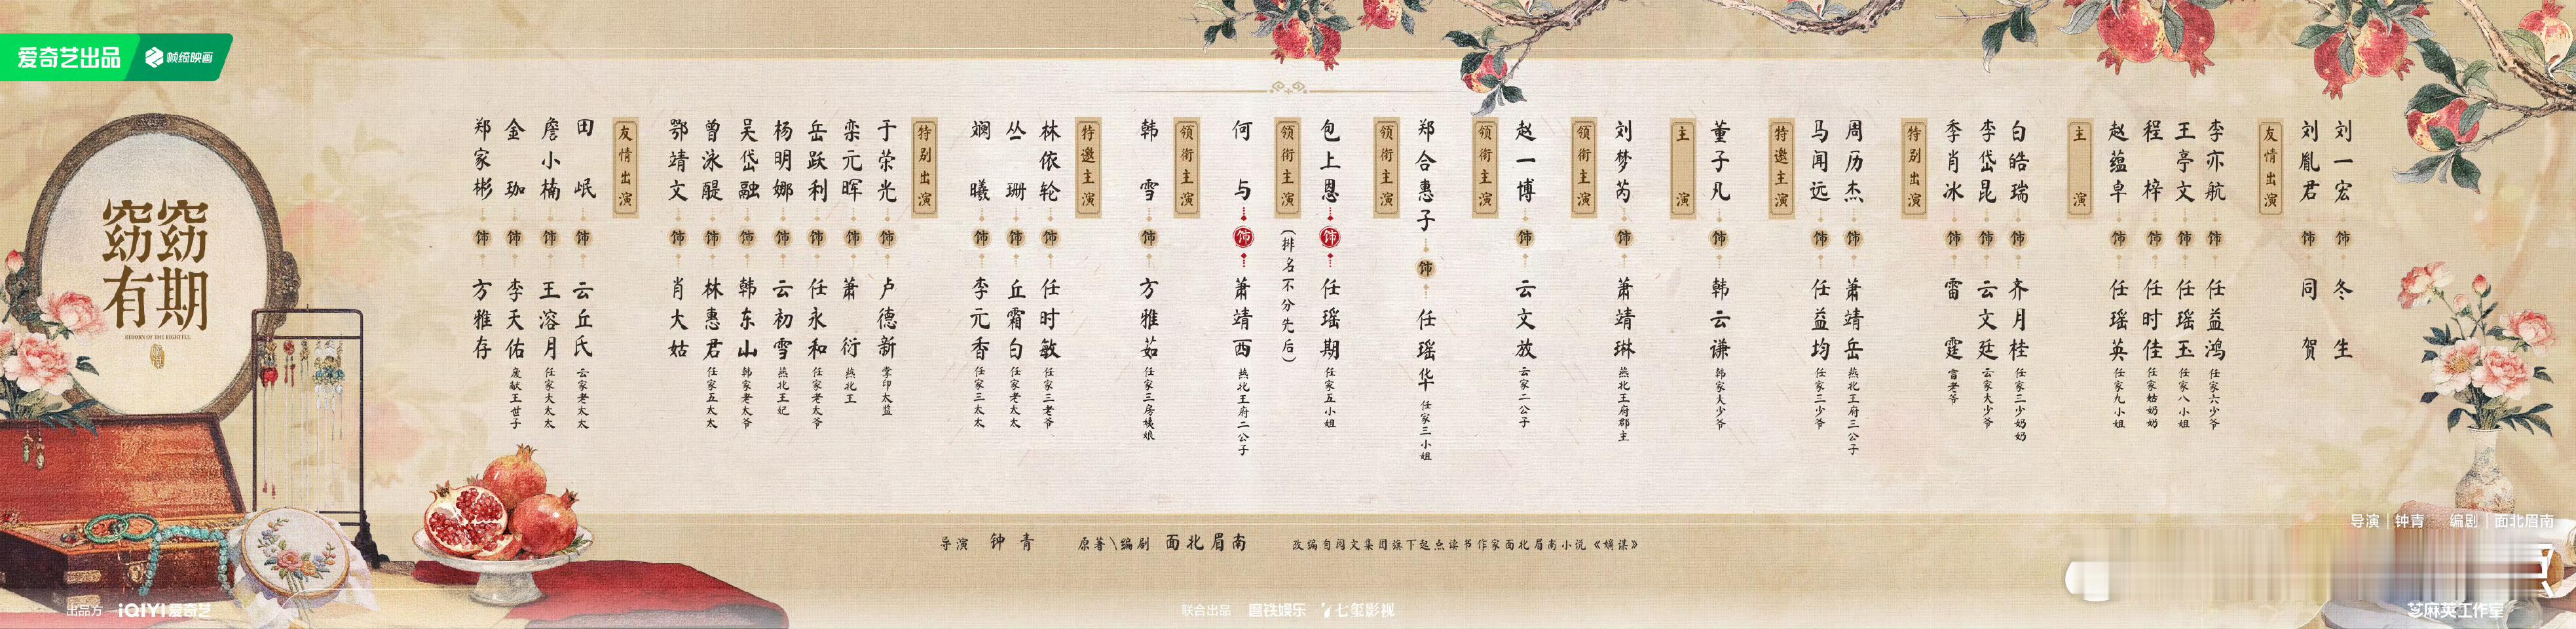 爱奇艺出品
帧绩映画
窈窈有期
REBORN OF THE RIGHTFUL
郑家彬 饰 方雅存
金珈 饰 李天佑 废献王世子
詹小楠 饰 王溶月 任家大太太
田岷 饰 云丘氏 云家老太太
友情出演
鄂靖文 饰 肖大姑
曾泳醍 饰 林惠君 任家五太太
吴岱融 饰 韩东山 韩家老太爷
杨明娜 饰 云初雪 燕北王妃
岳跃利 饰 任永和 任家老太爷
栾元晖 饰 萧衍 燕北王
于荣光 饰 卢德新 掌印太监
特别出演
斓曦 饰 李元香 任家三太太
丛珊 饰 丘霜白 任家老太太
林依轮 饰 任时敏 任家三老爷
特邀主演
韩雪 饰 方雅茹 任家三房姨娘
领衔主演
何与 饰 萧靖西 燕北王府二公子
领衔主演
（排名不分先后）
包上恩 饰 任瑶期 任家五小姐
领衔主演
郑合惠子 饰 任瑶华 任家三小姐
领衔主演
赵一博 饰 云文放 云家二公子
领衔主演
刘梦芮 饰 萧靖琳 燕北王府郡主
主演
董子凡 饰 韩云谦 韩家大少爷
特邀主演
马闻远 饰 任益均 任家三少爷
周历杰 饰 萧靖岳 燕北王府三公子
特别出演
季肖冰 饰 雷霆 雷老爷
李岱昆 饰 云文廷 云家大少爷
白皓瑞 饰 齐月桂 任家三少奶奶
主演
赵蕴卓 饰 任瑶英 任家九小姐
程梓 饰 任时佳 任家姑奶奶
王亭文 饰 任瑶玉 任家八小姐
李亦航 饰 任益鸿 任家六少爷
友情出演
刘胤君 饰 同贺
刘一宏 饰 冬生
导演 钟青 原著\编剧 面北眉南 改编自阅文集团旗下起点读书作家面北眉南小说《嫡谋》
导演｜钟青 编剧｜面北眉南
出品方 iQIYI爱奇艺
联合出品 喜铁娱乐 七玺影视
芝麻英工作室